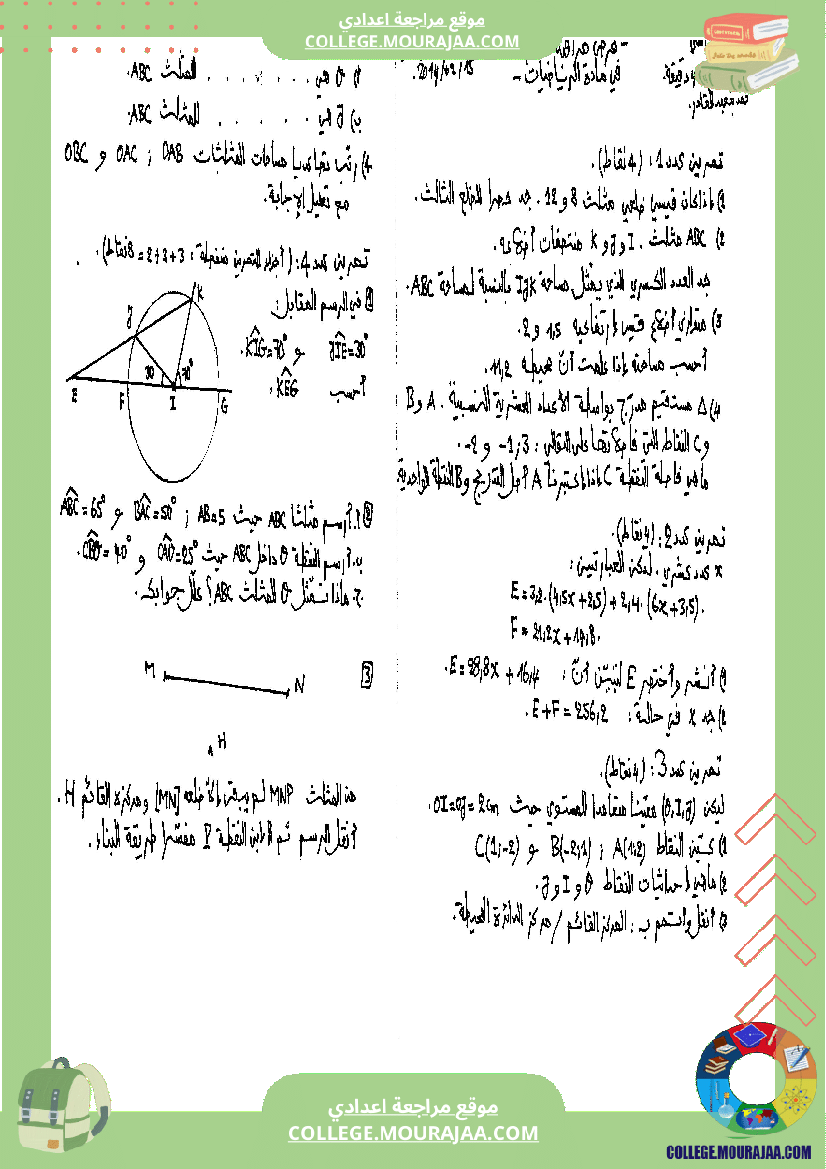 موقع مراجعة اعدادي
COLLEGE.MOURAJAA.COM
في مادة الرياضيات -
دقيقة.
تمرين عدد 1: (4 نقاط).
1) إذا كان قيس ضلعي مثلث 8 و 12. جد حصرا للضلع الثالث.
2) ABC مثلث. I و J و K منتصفات أضلاعه.
جد العدد الكسري الذي يمثل مساحة IJK بالنسبة لمساحة ABC.
3) متوازي أضلاع قيس ارتفاعيه 1,5 و 2.
أحسب مساحته إذا علمت أنّ محيطه 11,2.
4) Δ مستقيم مدرّج بواسطة الأعداد العشرية النسبية. A و B
و C النقاط التي فاصلاتها على التوالي: 3 ; 1- و 2-.
ما هي فاصلة النقطة C إذا اعتبرنا A أصل التدريج و B النقطة الواحدية.
تمرين عدد 2: (4 نقاط).
x عدد عشري. لتكن العبارتين:
E = 3,2.(4,5x + 2,5) + 2,4.(6x + 3,5).
F = 21,2x + 14,8.
1) أنشر وأختصر E لتبيّن أنّ: E = 28,8x + 16,4.
2) جد x في حالة: E + F = 256,2.
تمرين عدد 3: (4 نقاط).
ليكن (O,I,J) معيّنا متعامدا للمستوي حيث OI = OJ = 2cm.
1) عيّن النقاط A(1;2) ; B(-2;1) و C(1;-2)
2) ما هي إحداثيات النقاط O و I و J.
3) أنقل وأتمم ب: المركز القائم / مركز الدائرة المحيطة.
أ) O هي . . . . . . . المثلث ABC.
ب) J هي . . . . . . . للمثلث ABC.
4) رتب تصاعديا مساحات المثلثات OAB ; OAC و OBC
مع تعليل الإجابة.
تمرين عدد 4: (أجزاء التمرين منفصلة: 3+2+2 = 8 نقاط).
1 في الرسم المقابل:
JIE = 30° و KIG = 70°.
أحسب KEG.
K
J
30
70°
E
F
I
G
2 أ. أرسم مثلثا ABC حيث AB = 5 ; BAC = 50° و ABC = 65°
ب. أرسم النقطة O داخل ABC حيث OAD = 25° و CBO = 40°.
ج. ماذا تمثّل O للمثلث ABC؟ علّل جوابك.
3
M
N
H
هذا المثلث MNP لم يبق إلا ضلعه [MN] ومركزه القائم H.
أنقل الرسم ثم ابن النقطة P مفسّرا طريقة البناء.
موقع مراجعة اعدادي
COLLEGE.MOURAJAA.COM
COLLEGE.MOURAJAA.COM